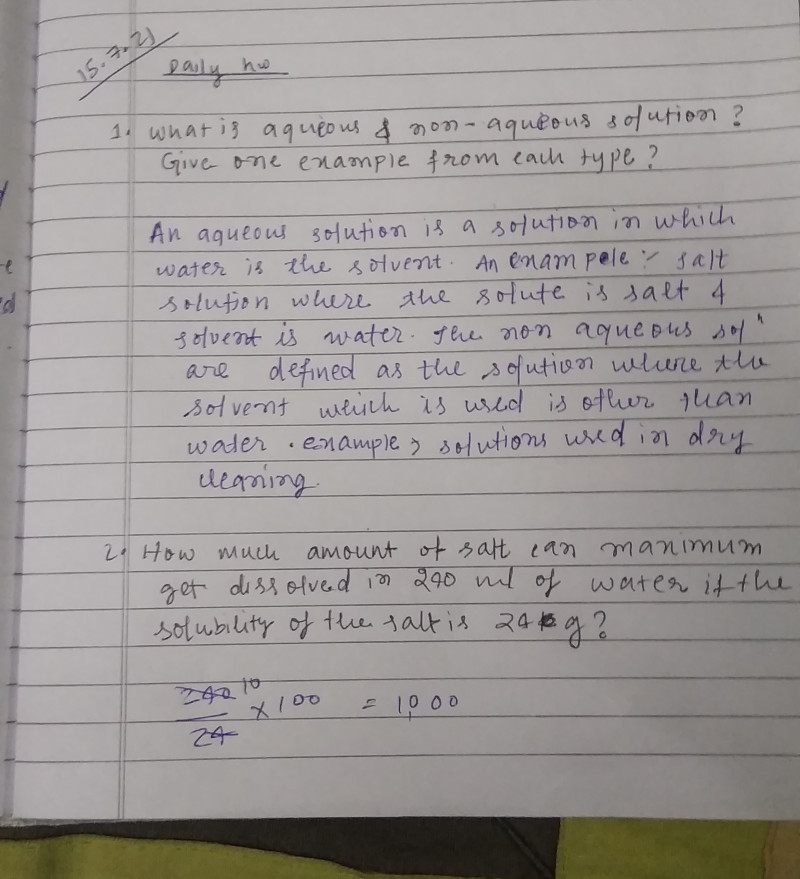 15.7.21
Daily hw
1. What is aqueous & non-aqueous solution?
Give one example from each type?
An aqueous solution is a solution in which
water is the solvent. An exam pele :- salt
solution where the solute is salt &
solvent is water. The non aqueous sol"
are defined as the solution where the
solvent which is used is other than
water. example, solutions used in dry
cleaning.
2. How much amount of salt can maximum
get dissolved in 240 ml of water if the
solubility of the salt is 24 g?
240 10
× 100 = 1000
24